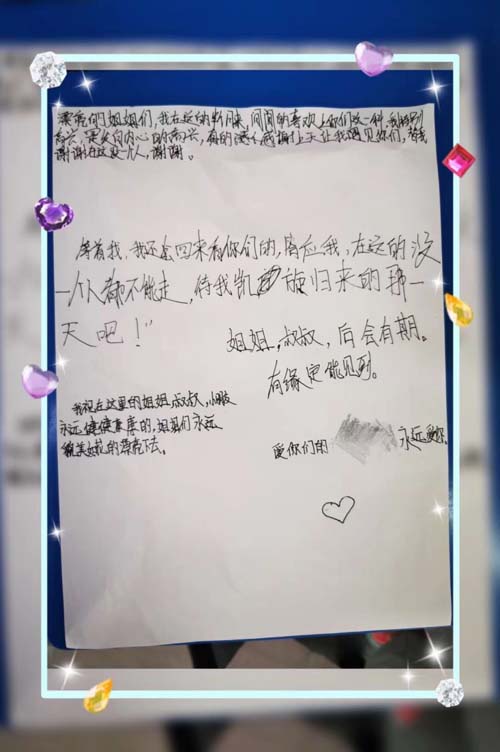 漂亮的姐姐们，我在这的断日来，间间的喜欢上你们这一种，我特别
高兴，是发自内心的高兴，真的感，感谢上天让我遇见你们，替我
谢谢在这的个人，谢谢。
等着我，我还会回来看你们的，答应我，在这的没
一个人都不能走，待我凯旋归来的那一
天吧！"
姐姐，叔叔，后会有期。
有缘定能见到。
我祝在这里的姐姐叔叔，小朋友
永远健健康康的，姐姐们永远
美的漂亮下去。
爱你们的 永远爱你